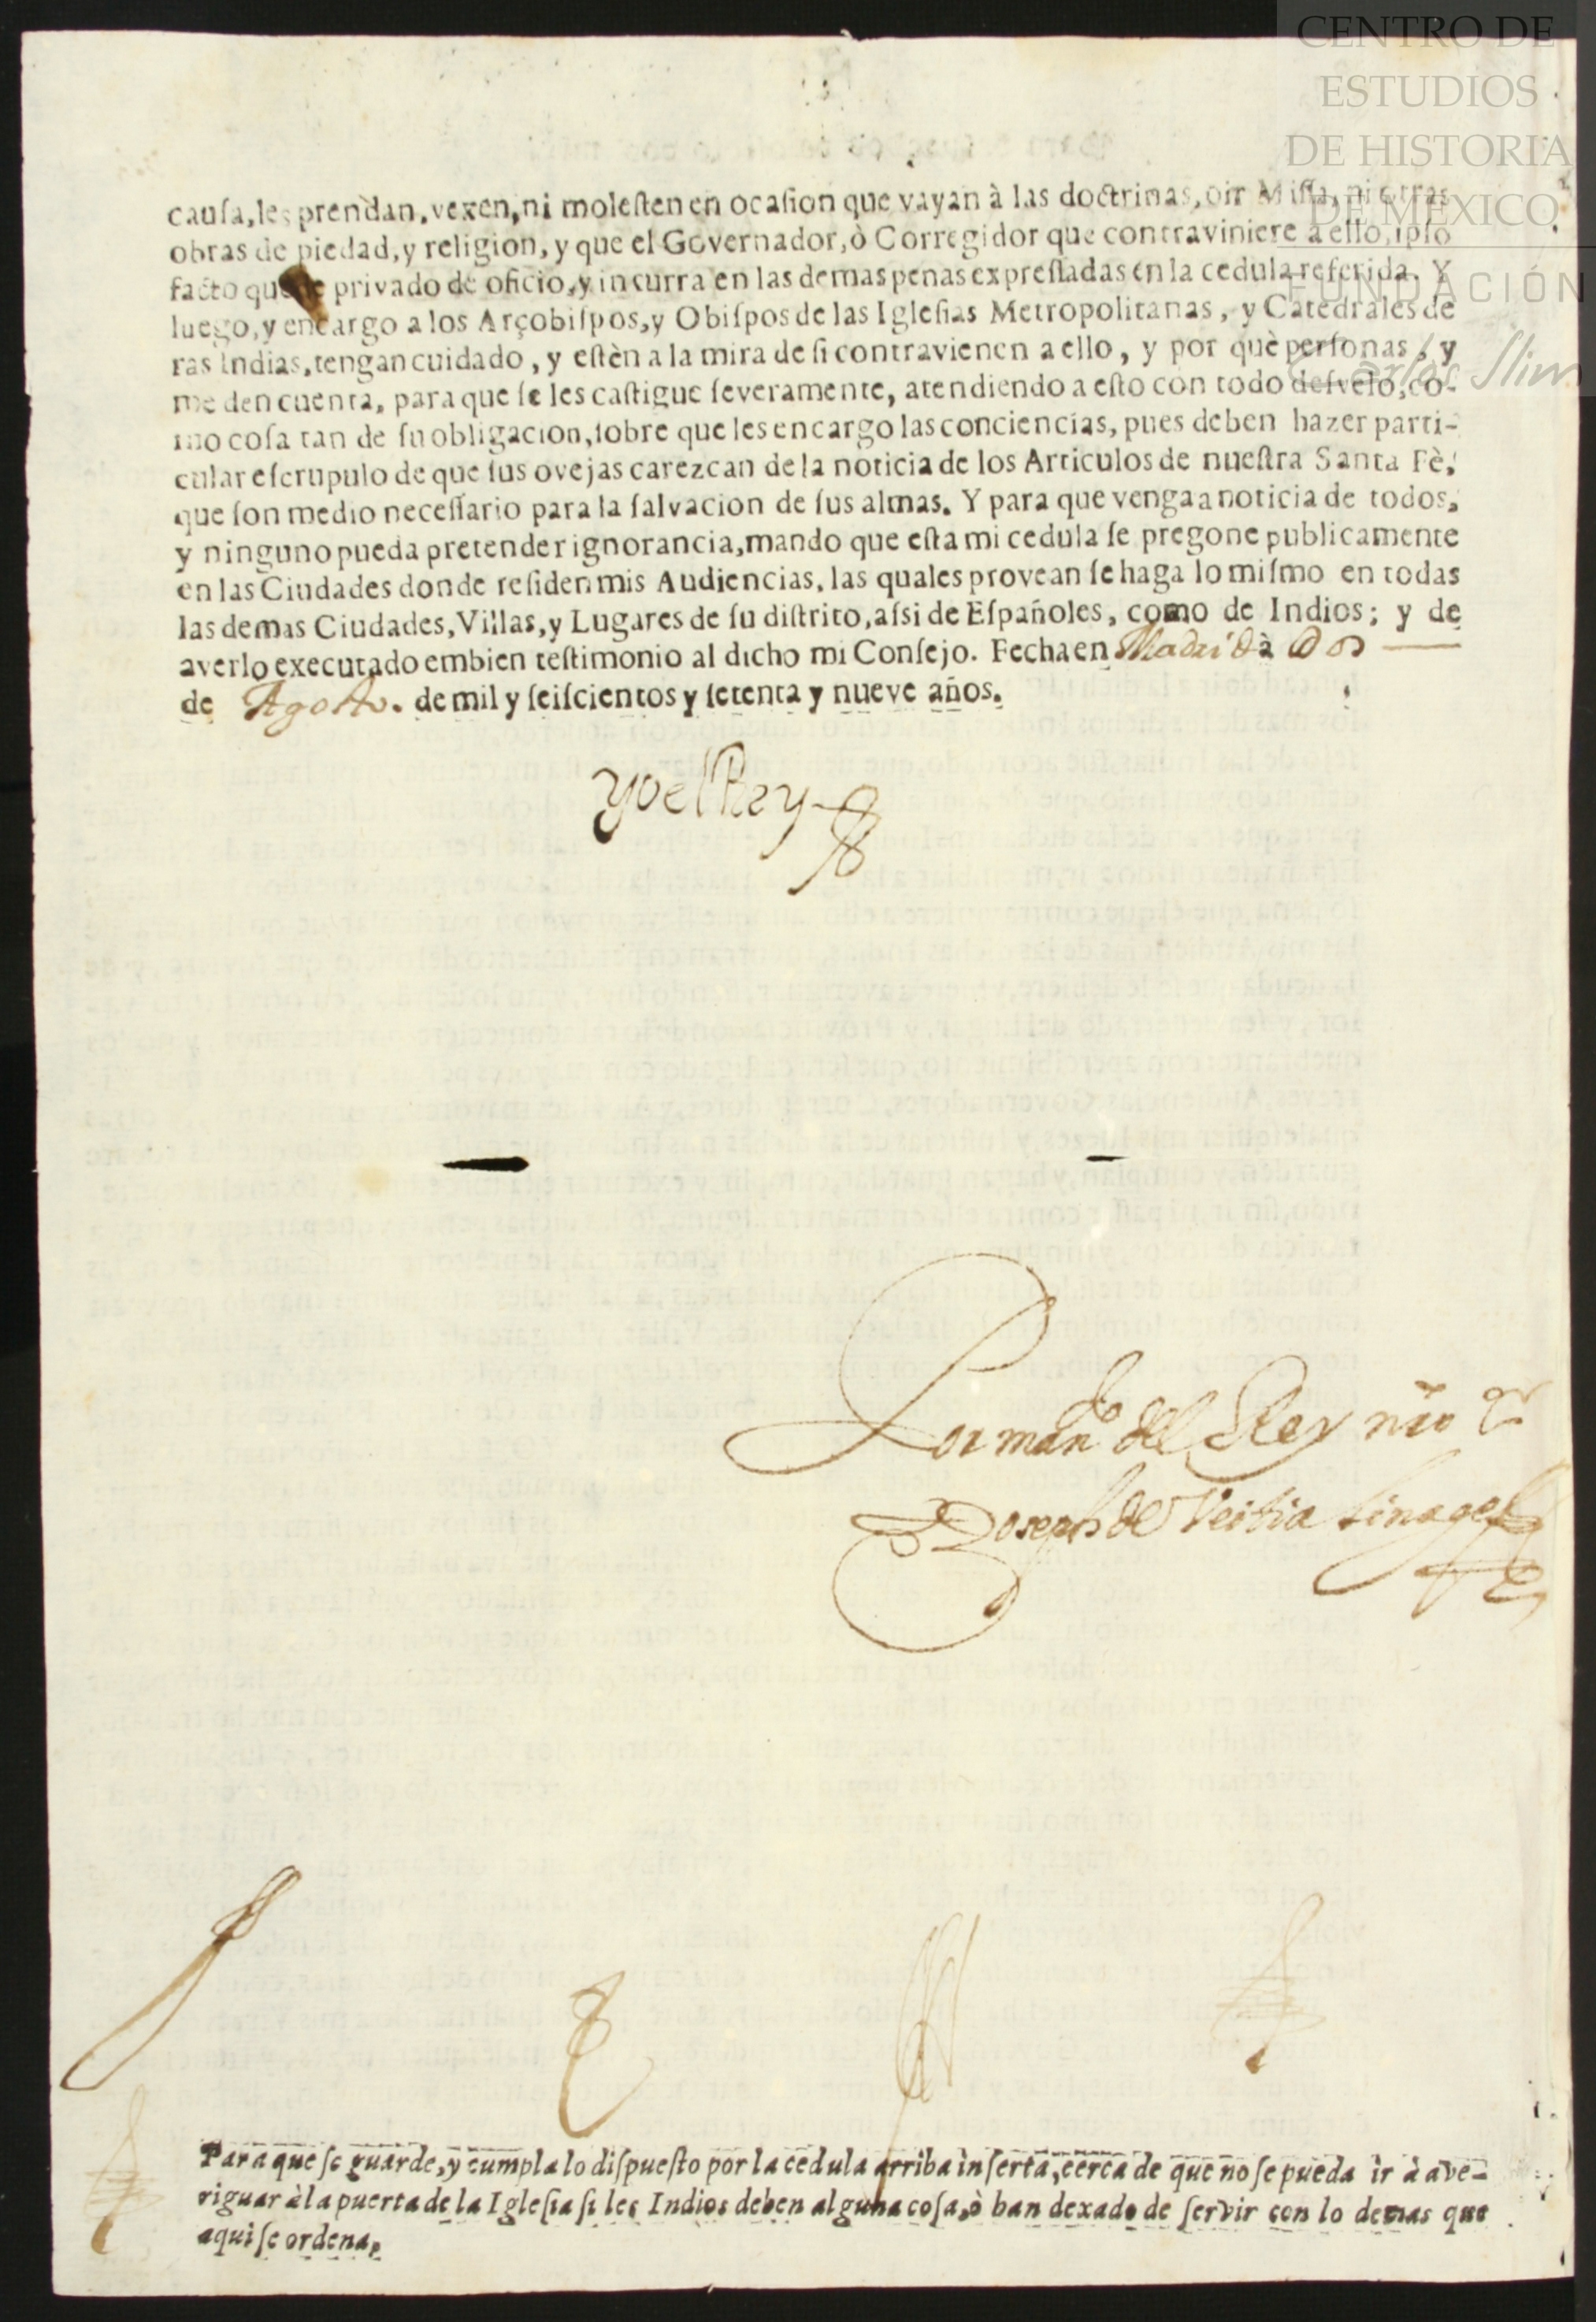 CENTRO DE
ESTUDIOS
DE HISTORIA
DE MÉXICO
FUNDACIÓN
Carlos Slim
cauſa, les prendan, vexen, ni moleſten en ocaſion que vayan à las doctrinas, oir Miſſa, ni otras
obras de piedad, y religion, y que el Governador, ò Corregidor que contraviniere a ello, ipſo
facto quede privado de oficio, y incurra en las demas penas expreſſadas en la cedula referida. Y
luego, y encargo a los Arçobiſpos, y Obiſpos de las Igleſias Metropolitanas, y Catedrales de
ras Indias, tengan cuidado, y eſtèn a la mira de ſi contravienen a ello, y por què perſonas, y
me den cuenta, para que ſe les caſtigue ſeveramente, atendiendo a eſto con todo deſvelo, co-
mo coſa tan de ſu obligacion, ſobre que les encargo las conciencias, pues deben hazer parti-
cular eſcrupulo de que ſus ovejas carezcan de la noticia de los Articulos de nueſtra Santa Fè,
que ſon medio neceſſario para la ſalvacion de ſus almas. Y para que venga a noticia de todos,
y ninguno pueda pretender ignorancia, mando que eſta mi cedula ſe pregone publicamente
en las Ciudades donde reſiden mis Audiencias, las quales provean ſe haga lo miſmo en todas
las demas Ciudades, Villas, y Lugares de ſu diſtrito, aſsi de Eſpañoles, como de Indios; y de
averlo executado embien teſtimonio al dicho mi Conſejo. Fecha en Madrid à dos
de Agosto. de mil y ſeiſcientos y ſetenta y nueve años.
Yo el Rey
Por mando del Rey nro Sr
Joseph de Veitia Linage
Para que ſe guarde, y cumpla lo diſpueſto por la cedula arriba inſerta, cerca de que no ſe pueda ir à ave-
riguar à la puerta de la Igleſia ſi les Indios deben alguna coſa, ò han dexado de ſervir con lo demas que
aqui ſe ordena.